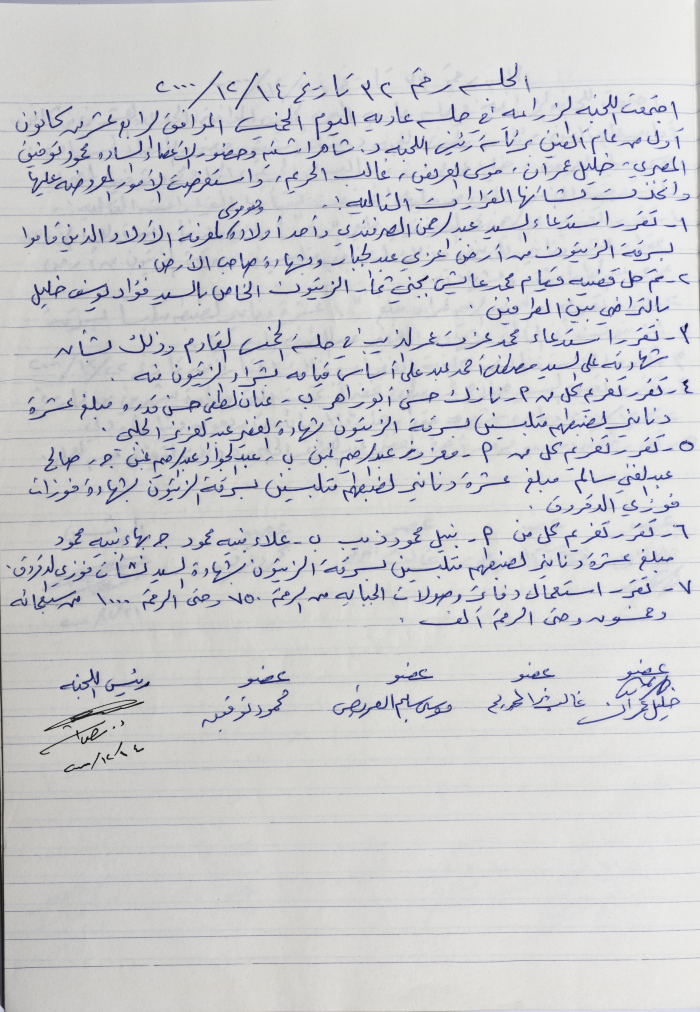 الجلسه رقم ٣٢ تاريخ ٢٠٠٠/١٢/١٤
اجتمعت اللجنه الزراعيه في جلسه عاديه اليوم الخميس الموافق الرابع عشر من كانون
أول من عام الفين برئاسة رئيس اللجنه د. شاهر اشتيه وحضور الأعضاء الساده محمود توفيق
المصري، خليل عمران، موسى العريض، غالب، واستعرضت الأمور المعروضه عليها
واتخذت بشأنها القرارات التاليه:
١- تقرر استدعاء السيد عبد الرحمن وأحد أولاده وهو موسى لمعرفة الأولاد الذين قاموا
بسرقة الزيتون من أرض عبد الجبار وشهادة صاحب الأرض.
٢- تم حل قضيه قيام محمد عايش بجني ثمار الزيتون الخاص بالسيد فؤاد يوسف خليل
بالتراضي بين الطرفين.
٣- تقرر استدعاء محمد عزت عمر الذيب في جلسة الخميس القادم وذلك بشأن
شهادته على السيد مصطفى احمد عبد على أساس قيامه بشراء الزيتون منه.
٤- تقرر تغريم كل من أ- حسني ابو زاهر ب- عنان لطفي حسن مبلغ عشرة
دنانير لضبطهم متلبسين بسرقة الزيتون بشهادة عبد العزيز الحلبي.
٥- تقرر تغريم كل من أ- عبد الرحيم غني ب- عبد الجواد عبد الرحيم غني ج- صالح
عبد الغني سالم مبلغ عشرة دنانير لضبطهم متلبسين بسرقة الزيتون بشهادة
فوزي الدقروق.
٦- تقرر تغريم كل من أ- نبيل محمود ذيب ب- علاء نبيه محمود ج- بهاء نبيه محمود
مبلغ عشرة دنانير لضبطهم متلبسين بسرقة الزيتون بشهادة السيد نشأت فوزي الدقروق.
٧- تقرر استعمال دفاتر وصولات الجبايه من الرقم ٧٥٠ وحتى الرقم ١٠٠٠ من سبعمائه
وخمسون وحتى الرقم ألف.
عضو عضو عضو عضو رئيس اللجنه
خليل عمران غالب موسى سليم العريض محمود توفيق
٢٠٠٠/١٢/١٤